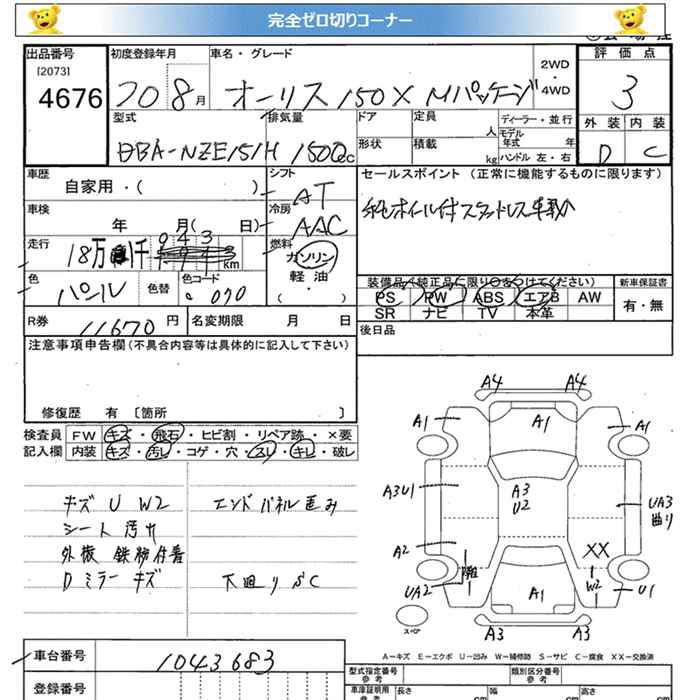 完全ゼロ切りコーナー
出品番号 初度登録年月 車名・グレード 2WD・4WD 評価点
[2073]
4676 20 8月 オーリス 150X Mパッケージ 3
型式 排気量 ドア 定員 人 ディーラー・並行 外装 内装
DBA-NZE151H 1500cc 形状 積載 kg モデル年式 年 ハンドル 左・右 D C
車歴 シフト セールスポイント(正常に機能するものに限ります)
自家用・( ) AT
車検 冷房
年 月( 日) AAC
走行 燃料
18万 千 943 Km ガソリン
色 色替 色コード 軽油
パール 070 ・( )
装備品(純正品に限り○をつけてください) 新車保証書
PS PW ABS エアB AW 有・無
SR ナビ TV 本革
R券 11670円 名変期限 月 日 後日品
注意事項申告欄(不具合内容等は具体的に記入して下さい)
修復歴 有 [箇所 ]
検査員 FW キズ・飛石・ヒビ割・リペア跡・×要
記入欄 内装 キズ・汚レ・コゲ・穴・スレ・キレ・破レ
キズ U W2 エンドパネル歪み
シート汚れ
外板 鉄粉付着
Dミラーキズ 下廻りSC
A4 A4
A1 A1 A1
A3U1 A3 U2 UA3 曲り
A2 XX
UA2 A1 W2 U1
スペア
A3 A3
A-キズ E-エクボ U-凹み W-補修跡 S-サビ C-腐食 XX-交換済
車台番号 1043683
型式指定番号 参考 類別区分番号 参考
登録番号 車庫証明用 参考 長さ cm 幅 cm 高さ cm